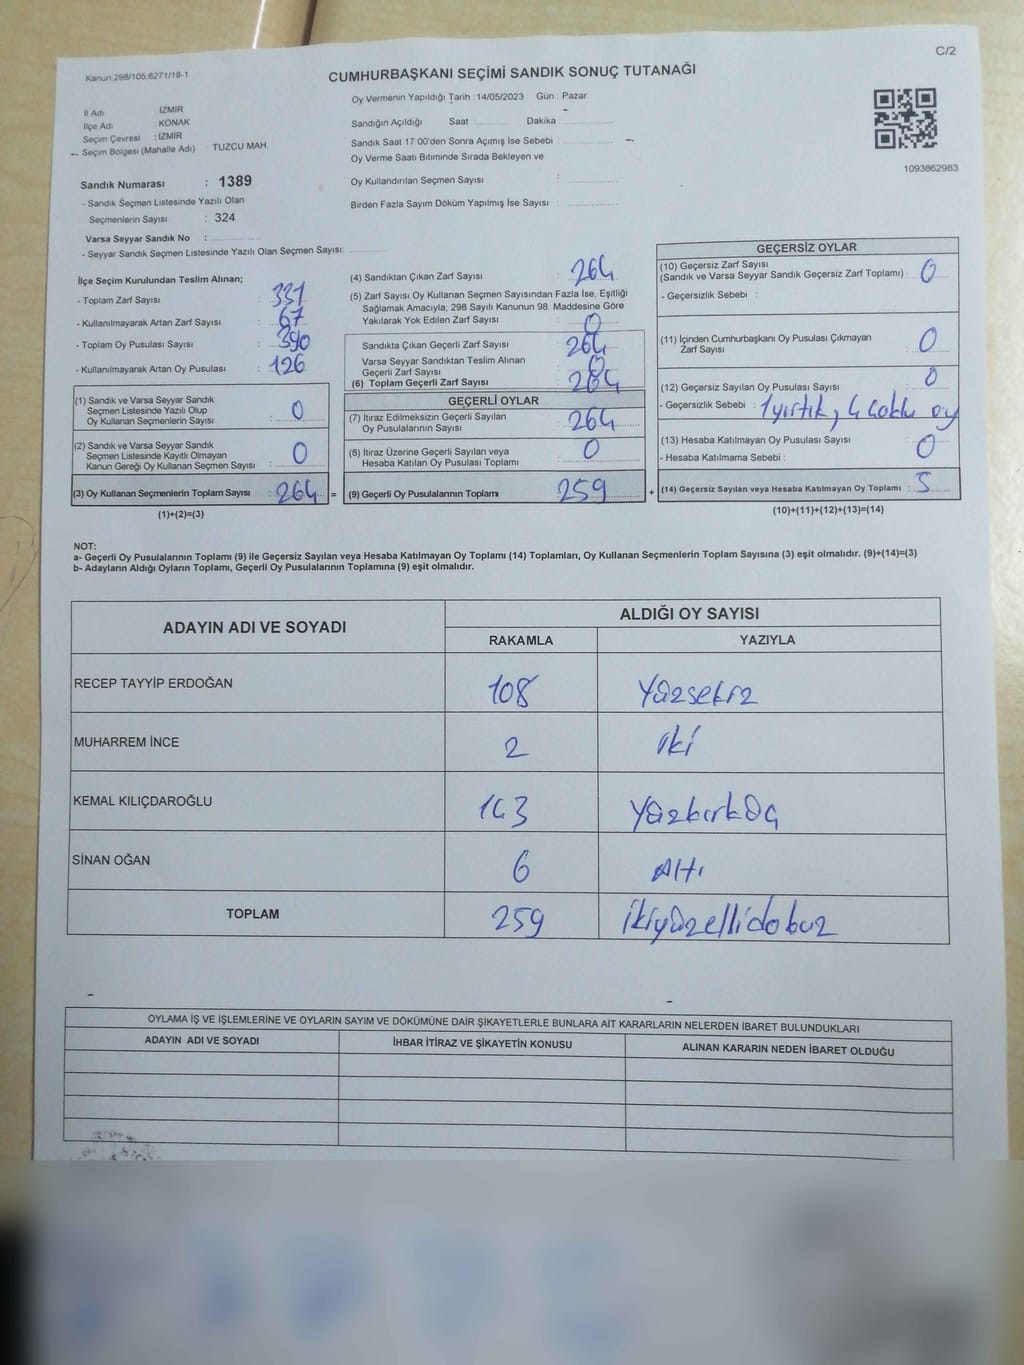 C/2
Kanun 298/105.6271/18-1
CUMHURBAŞKANI SEÇİMİ SANDIK SONUÇ TUTANAĞI
İl Adı İZMİR
İlçe Adı KONAK
Seçim Çevresi : İZMİR
Seçim Bölgesi (Mahalle Adı) : TUZCU MAH.
Sandık Numarası : 1389
- Sandık Seçmen Listesinde Yazılı Olan
Seçmenlerin Sayısı : 324
Varsa Seyyar Sandık No :
- Seyyar Sandık Seçmen Listesinde Yazılı Olan Seçmen Sayısı:
Oy Vermenin Yapıldığı Tarih : 14/05/2023 Gün : Pazar
Sandığın Açıldığı Saat Dakika
Sandık Saat 17.00'den Sonra Açımış İse Sebebi
Oy Verme Saati Bitiminde Sırada Bekleyen ve
Oy Kullandırılan Seçmen Sayısı :
Birden Fazla Sayım Döküm Yapılmış İse Sayısı :
1093862983
İlçe Seçim Kurulundan Teslim Alınan;
- Toplam Zarf Sayısı : 331
- Kullanılmayarak Artan Zarf Sayısı : 67
- Toplam Oy Pusulası Sayısı : 390
- Kullanılmayarak Artan Oy Pusulası : 126
(1) Sandık ve Varsa Seyyar Sandık
Seçmen Listesinde Yazılı Olup
Oy Kullanan Seçmenlerin Sayısı : 0
(2) Sandık ve Varsa Seyyar Sandık
Seçmen Listesinde Kayıtlı Olmayan
Kanun Gereği Oy Kullanan Seçmen Sayısı : 0
(3) Oy Kullanan Seçmenlerin Toplam Sayısı : 264 =
(1)+(2)=(3)
(4) Sandıktan Çıkan Zarf Sayısı : 264
(5) Zarf Sayısı Oy Kullanan Seçmen Sayısından Fazla İse, Eşitliği
Sağlamak Amacıyla, 298 Sayılı Kanunun 98. Maddesine Göre
Yakılarak Yok Edilen Zarf Sayısı : 0
Sandıkta Çıkan Geçerli Zarf Sayısı : 264
Varsa Seyyar Sandıktan Teslim Alınan
Geçerli Zarf Sayısı : 0
(6) Toplam Geçerli Zarf Sayısı : 264
GEÇERLİ OYLAR
(7) İtiraz Edilmeksizin Geçerli Sayılan
Oy Pusulalarının Sayısı : 264
(8) İtiraz Üzerine Geçerli Sayılan veya
Hesaba Katılan Oy Pusulası Toplamı : 0
(9) Geçerli Oy Pusulalarının Toplamı : 259 +
GEÇERSİZ OYLAR
(10) Geçersiz Zarf Sayısı
(Sandık ve Varsa Seyyar Sandık Geçersiz Zarf Toplamı) : 0
- Geçersizlik Sebebi :
(11) İçinden Cumhurbaşkanı Oy Pusulası Çıkmayan
Zarf Sayısı : 0
(12) Geçersiz Sayılan Oy Pusulası Sayısı : 0
- Geçersizlik Sebebi : 1 yırtık, 4 çoklu oy
(13) Hesaba Katılmayan Oy Pusulası Sayısı : 0
- Hesaba Katılmama Sebebi :
(14) Geçersiz Sayılan veya Hesaba Katılmayan Oy Toplamı : 5
(10)+(11)+(12)+(13)=(14)
NOT:
a- Geçerli Oy Pusulalarının Toplamı (9) ile Geçersiz Sayılan veya Hesaba Katılmayan Oy Toplamı (14) Toplamları, Oy Kullanan Seçmenlerin Toplam Sayısına (3) eşit olmalıdır. (9)+(14)=(3)
b- Adayların Aldığı Oyların Toplamı, Geçerli Oy Pusulalarının Toplamına (9) eşit olmalıdır.
ADAYIN ADI VE SOYADI ALDIĞI OY SAYISI
RAKAMLA YAZIYLA
RECEP TAYYİP ERDOĞAN 108 Yüzsekiz
MUHARREM İNCE 2 iki
KEMAL KILIÇDAROĞLU 143 Yüzkırküç
SİNAN OĞAN 6 Altı
TOPLAM 259 ikiyüzellidokuz
OYLAMA İŞ VE İŞLEMLERİNE VE OYLARIN SAYIM VE DÖKÜMÜNE DAİR ŞİKAYETLERLE BUNLARA AİT KARARLARIN NELERDEN İBARET BULUNDUKLARI
ADAYIN ADI VE SOYADI İHBAR İTİRAZ VE ŞİKAYETİN KONUSU ALINAN KARARIN NEDEN İBARET OLDUĞU